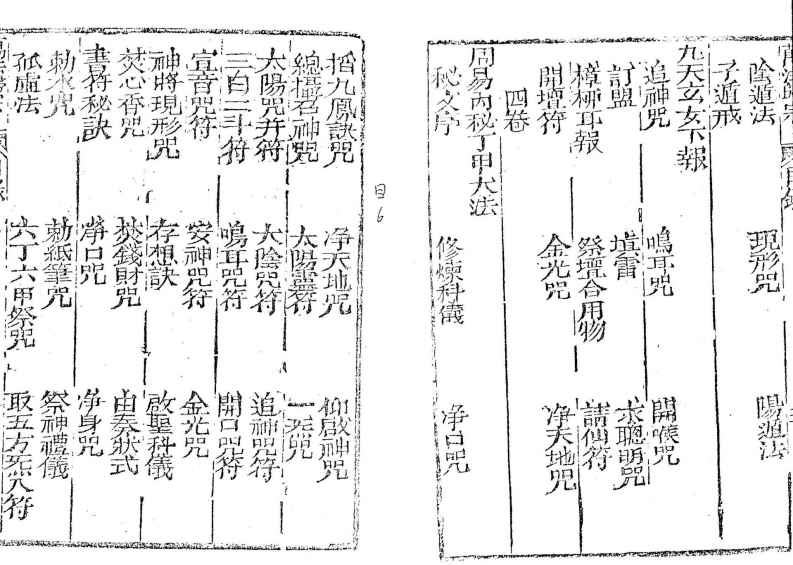 陰遁法 現形咒 陽遁法
子遁戒
九天玄女下報
追神咒 鳴耳咒 開喉咒
訂盟 填雷 求聰明咒
樟柳耳報 祭壇合用物 請仙符
開壇符 金光咒 净天地咒
四卷
周易內秘丁甲大法
秘文序 修煉科儀 净口咒
目6
搯九鳳訣咒 净天地咒 仰啟神咒
總攝召神咒 太陽罡符 一炁咒
太陽咒并符 太陰咒符 追神咒符
三台二斗符 鳴耳咒符 開口咒符
宣音咒符 安神咒符 金光咒
神將現形咒 存想訣 啟聖科儀
焚心香咒 焚錢財咒 由奏狀式
書符秘訣 淨口咒 净身咒
勅水咒 勅紙筆咒 祭神禮儀
孤虛法 六丁六甲祭咒 取五方炁八符